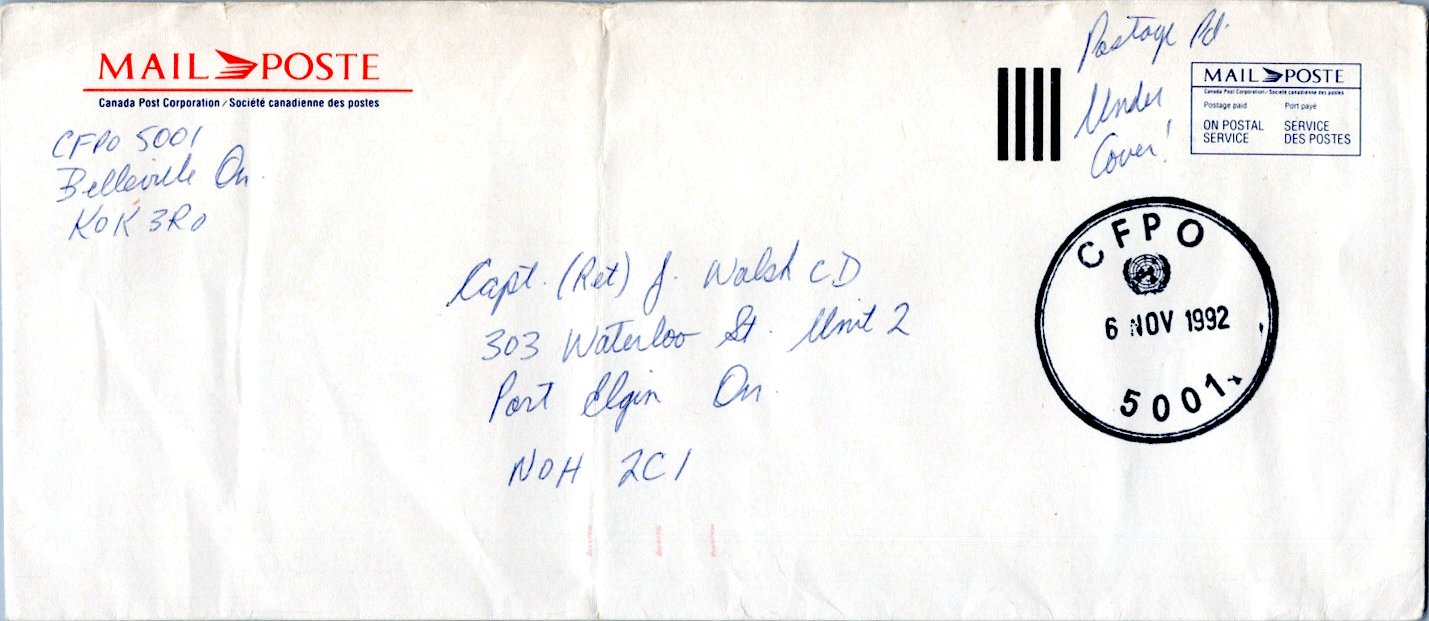 MAIL POSTE
Canada Post Corporation / Société canadienne des postes
CFPO 5001
Belleville On
K0K 3R0
Postage Pd.
Under
Cover!
MAIL POSTE
Canada Post Corporation / Société canadienne des postes
Postage paid Port payé
ON POSTAL SERVICE
SERVICE DES POSTES
CFPO
6 NOV 1992
5001
Capt. (Ret) J. Walsh CD
303 Waterloo St. Unit 2
Port Elgin On.
N0H 2C1